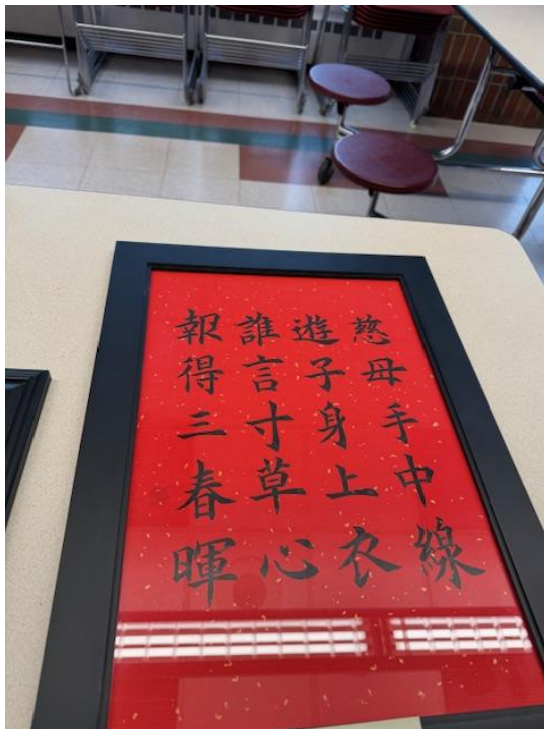 慈母手中線
遊子身上衣
誰言寸草心
報得三春暉